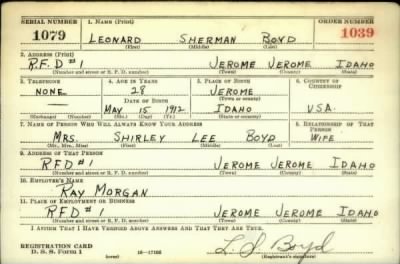 SERIAL NUMBER 1. NAME (Print) ORDER NUMBER
1079 LEONARD SHERMAN BOYD 1039
(First) (Middle) (Last)
2. ADDRESS (Print)
R.F.D #1 JEROME JEROME IDAHO
(Number and street or R. F. D. number) (Town) (County) (State)
3. TELEPHONE 4. AGE IN YEARS 5. PLACE OF BIRTH 6. COUNTRY OF CITIZENSHIP
NONE 28 JEROME
DATE OF BIRTH (Town or county)
MAY 15 1912 IDAHO USA.
(Exchange) (Number) (Mo.) (Day) (Yr.) (State or country)
7. NAME OF PERSON WHO WILL ALWAYS KNOW YOUR ADDRESS 8. RELATIONSHIP OF THAT PERSON
MRS. SHIRLEY LEE BOYD WIFE
(Mr., Mrs., Miss) (First) (Middle) (Last)
9. ADDRESS OF THAT PERSON
RFD #1 JEROME JEROME IDAHO
(Number and street or R. F. D. number) (Town) (County) (State)
10. EMPLOYER'S NAME
RAY MORGAN
11. PLACE OF EMPLOYMENT OR BUSINESS
RFD #1 JEROME JEROME IDAHO
(Number and street or R. F. D. number) (Town) (County) (State)
I AFFIRM THAT I HAVE VERIFIED ABOVE ANSWERS AND THAT THEY ARE TRUE.
REGISTRATION CARD
D. S. S. Form 1 (over) 16—17105 L. S. Boyd
(Registrant's signature)